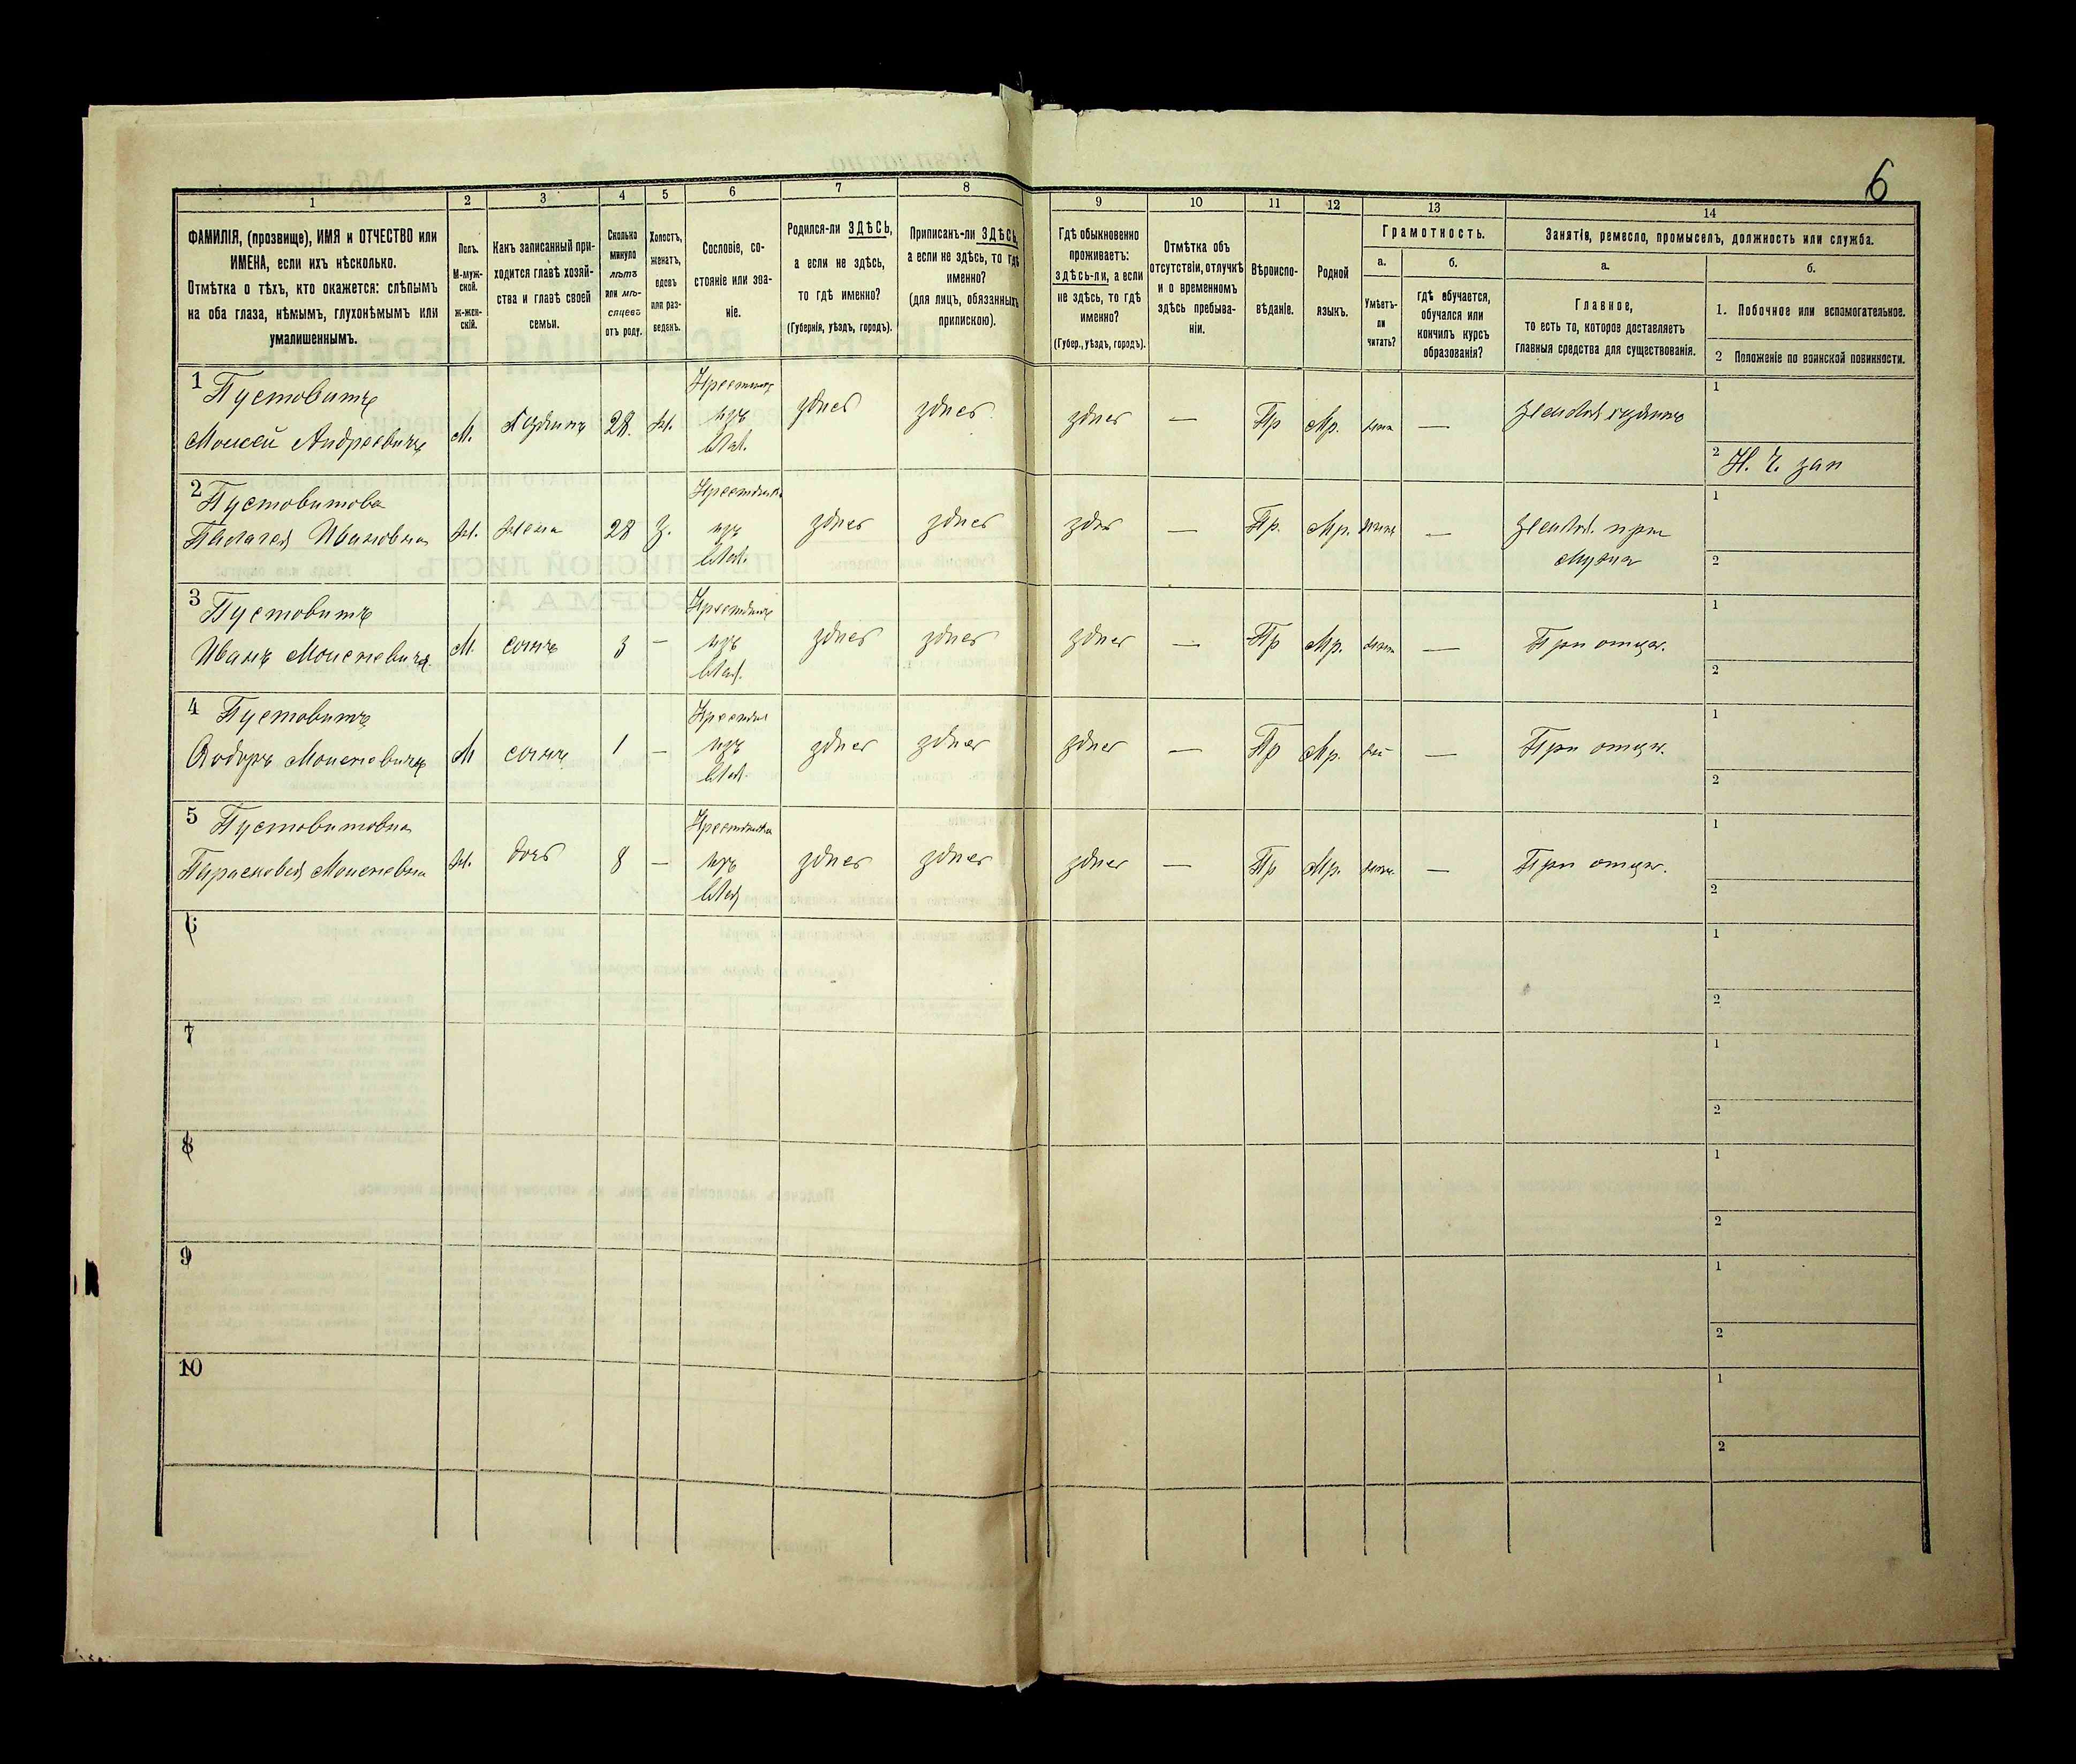 6
1 2 3 4 5 6 7 8 9 10 11 12 13 14
ФАМИЛІЯ, (прозвище), ИМЯ и ОТЧЕСТВО или
ИМЕНА, если ихъ нѣсколько.
Отмѣтка о тѣхъ, кто окажется: слѣпымъ
на оба глаза, нѣмымъ, глухонѣмымъ или
умалишеннымъ.
Полъ.
М-муж-
ской.
ж-жен-
скій.
Какъ записанный при-
ходится главѣ хозяй-
ства и главѣ своей
семьи.
Сколько
минуло
лѣтъ
или мѣ-
сяцевъ
отъ роду.
Холостъ,
женатъ,
вдовъ
или раз-
веденъ.
Сословіе, со-
стояніе или зва-
ніе.
Родился-ли ЗДѢСЬ,
а если не здѣсь,
то гдѣ именно?
(Губернія, уѣздъ, городъ).
Приписанъ-ли ЗДѢСЬ,
а если не здѣсь, то гдѣ
именно?
(для лицъ, обязанныхъ
припискою).
Гдѣ обыкновенно
проживаетъ:
здѣсь-ли, а если
не здѣсь, то гдѣ
именно?
(Губер., уѣздъ, городъ).
Отмѣтка объ
отсутствіи, отлучкѣ
и о временномъ
здѣсь пребыва-
ніи.
Вѣроиспо-
вѣданіе.
Родной
языкъ.
Грамотность.
а.
Умѣетъ-
ли
читать?
б.
гдѣ обучается,
обучался или
кончилъ курсъ
образованія?
Занятія, ремесло, промыселъ, должность или служба.
а.
Главное,
то есть то, которое доставляетъ
главныя средства для существованія.
б.
1. Побочное или вспомогательное.
2 Положеніе по воинской повинности.
1 Пустовитъ
Моисей Андреевичъ
М. Хозяинъ 28. Ж.
Крестьян.
изъ
влад.
здѣсь здѣсь здѣсь — Пр Мр. —
1
2 Н. Ч. зап
2 Пустовитова
Палагея Ивановна
Ж. жена 28 З.
Крестьянка
изъ
влад.
здѣсь здѣсь здѣсь — Пр. Мр. —
при
мужѣ
1
2
3 Пустовитъ
Иванъ Моисеевичъ
М. сынъ 3 —
Крестьян.
изъ
влад.
здѣсь здѣсь здѣсь — Пр Мр. — При отцѣ.
1
2
4 Пустовитъ
Ѳедоръ Моисеевичъ
М сынъ 1 —
Крестьян
изъ
влад.
здѣсь здѣсь здѣсь — Пр Мр. — При отцѣ.
1
2
5 Пустовитовна
Парасковея Моисеевна
Ж. дочь 8 —
Крестьянка
изъ
влад
здѣсь здѣсь здѣсь — Пр Мр. — При отцѣ.
1
2
6
1
2
7
1
2
8
1
2
9
1
2
10
1
2